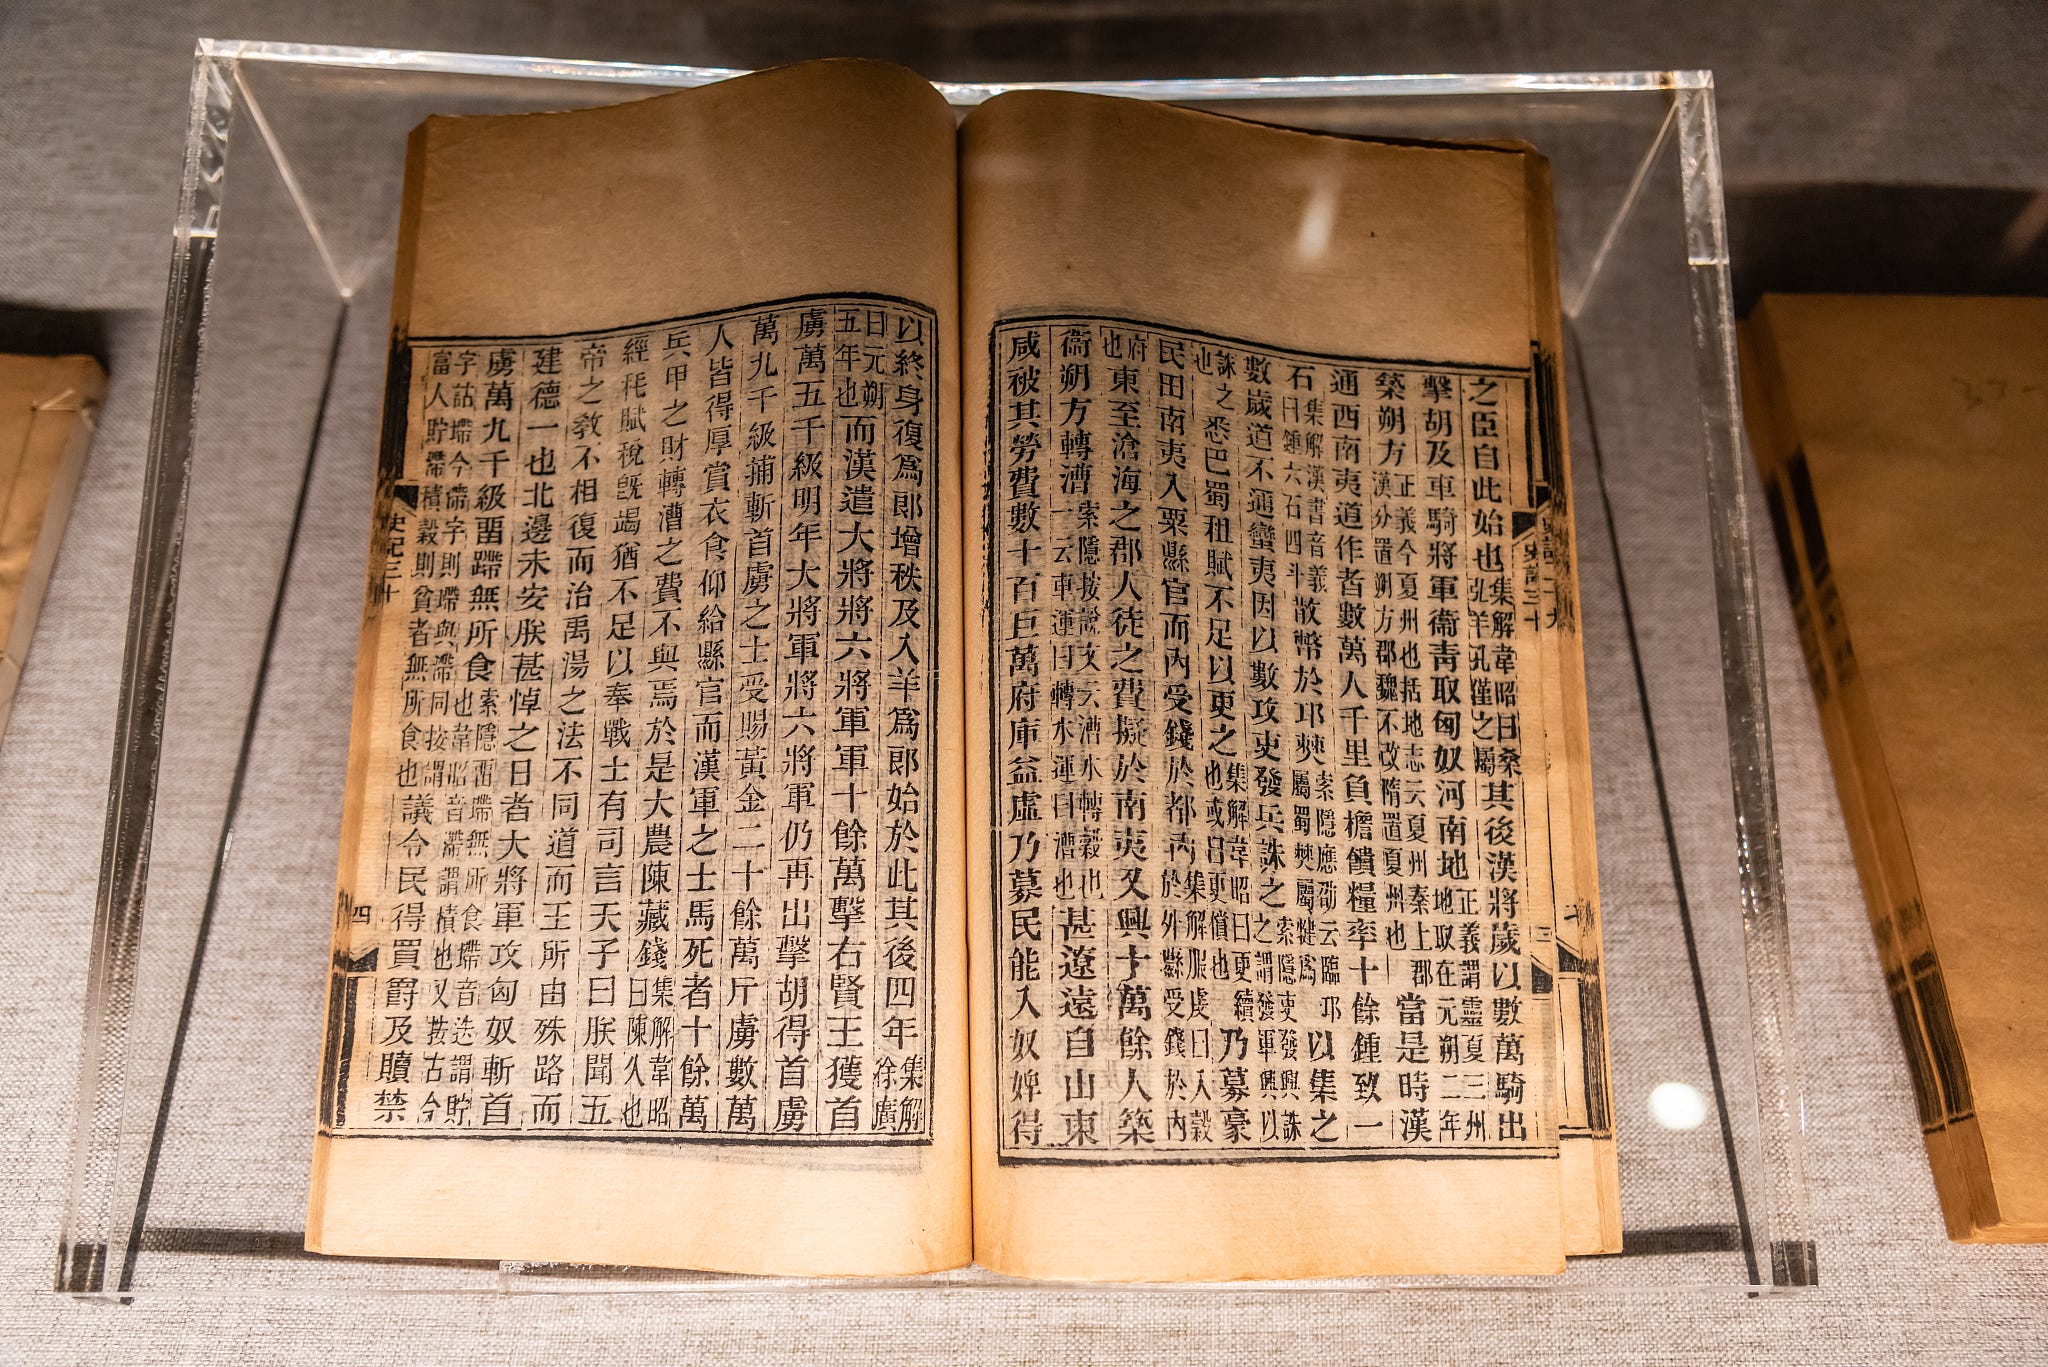 史記三十
三
之臣自此始也集解韋昭曰桑弘羊孔僅之屬其後漢將歲以數萬騎出
擊胡及車騎將軍衞靑取匈奴河南地正義謂靈夏三州地取在元朔二年
築朔方正義今夏州也括地志云夏州秦上郡漢分置朔方郡魏不改隋置夏州也當是時漢
通西南夷道作者數萬人千里負擔饋糧率十餘鍾致一
石集解漢書音義曰鍾六石四斗散幣於邛僰索隱應劭云臨邛屬蜀僰屬犍爲以集之
數歲道不通蠻夷因以數攻吏發兵誅之索隱吏發興誅之謂發軍興以
誅之也悉巴蜀租賦不足以更之集解韋昭曰更續也或曰更償也乃募豪
民田南夷入粟縣官而內受錢於都內集解服虔曰入穀於外縣受錢於內
府也東至滄海之郡人徒之費擬於南夷又興十萬餘人築
衞朔方轉漕索隱按說文云漕水轉穀也一云車運曰轉水運曰漕也甚遼遠自山東
咸被其勞費數十百巨萬府庫益虛乃募民能入奴婢得
以終身復爲郎增秩及入羊爲郎始於此其後四年集解徐廣
曰元朔五年也而漢遣大將將六將軍軍十餘萬擊右賢王獲首
虜萬五千級明年大將軍將六將軍仍再出擊胡得首虜
萬九千級捕斬首虜之士受賜黃金二十餘萬斤虜數萬
人皆得厚賞衣食仰給縣官而漢軍之士馬死者十餘萬
兵甲之財轉漕之費不與焉於是大農陳藏錢集解韋昭曰陳久也
經秏賦稅旣竭猶不足以奉戰士有司言天子曰朕聞五
帝之敎不相復而治禹湯之法不同道而王所由殊路而
建德一也北邊未安朕甚悼之日者大將軍攻匈奴斬首
虜萬九千級畱蹛無所食索隱畱墆無所食墆音迭謂貯也韋昭音滯謂積也又按古今
字詁墆今滯字則墆與滯同按謂富人貯滯積穀則貧者無所食也議令民得買爵及贖禁
史記三十
四